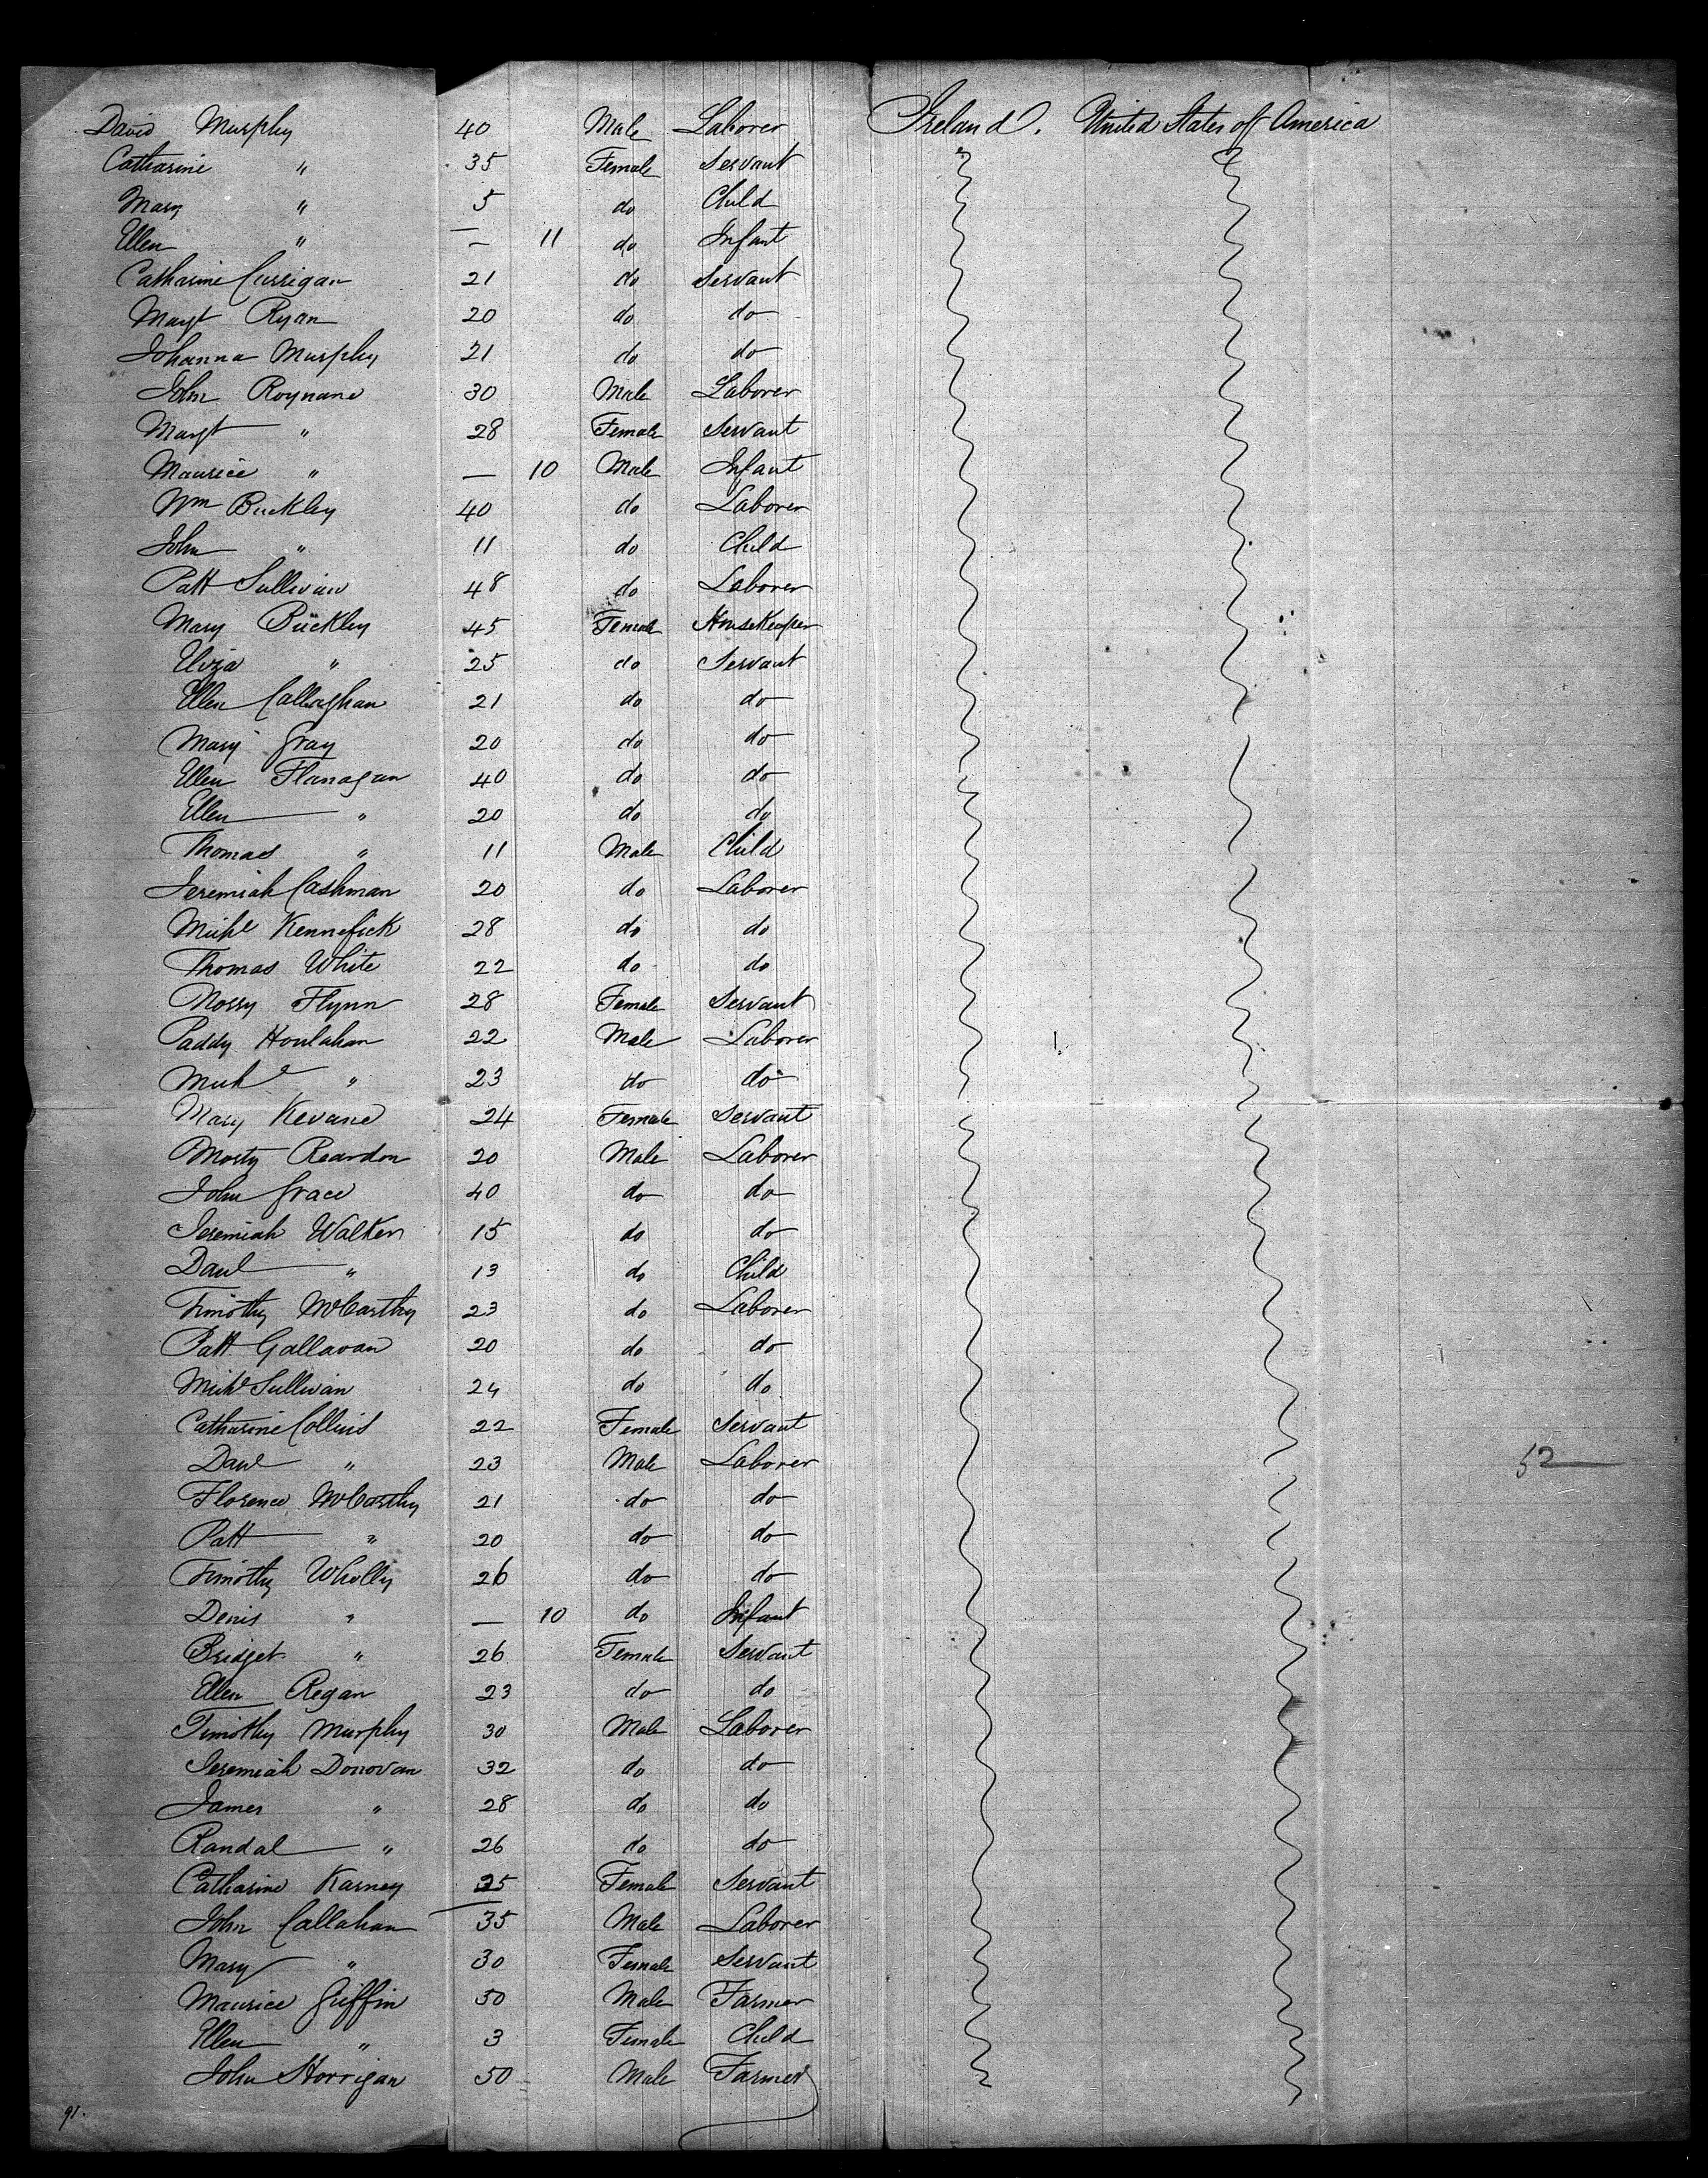 David Murphy 40 Male Laborer Ireland. United States off America
Catharine " 35 Female Servant
Mary " 5 do Child
Ellen " — 11 do Infant
Catharine Currigan 21 do Servant
Margt Ryan 20 do do
Johanna Murphy 21 do do
John Roynane 30 Male Laborer
Margt " 28 Female Servant
Maurice " — 10 Male Infant
Wm Buckley 40 do Laborer
John " 11 do Child
Patt Sullivan 48 do Laborer
Mary Buckley 45 Female HouseKeeper
Eliza " 25 do Servant
Ellen Callaghan 21 do do
Mary Gray 20 do do
Ellen Flanagan 40 do do
Ellen " 20 do do
Thomas " 11 Male Child
Jeremiah Cashman 20 do Laborer
Michl Kennefick 28 do do
Thomas White 22 do do
Norry Flynn 28 Female Servant
Paddy Houlahan 22 Male Laborer
Michl " 23 do do
Mary Kevane 24 Female Servant
Morty Reardon 20 Male Laborer
John Grace 40 do do
Jeremiah Walken 15 do do
Danl " 13 do Child
Timothy McCarthy 23 do Laborer
Patt Gallavan 20 do do
Michl Sullivan 24 do do
Catharine Collins 22 Female Servant
Danl " 23 Male Laborer 52
Florence McCarthy 21 do do
Patt " 20 do do
Timothy Wholly 26 do do
Denis " — 10 do Infant
Bridget " 26 Female Servant
Ellen Regan 23 do do
Timothy Murphy 30 Male Laborer
Jeremiah Donovan 32 do do
James " 28 do do
Randal " 26 do do
Catharine Karney 25 Female Servant
John Callahan 35 Male Laborer
Mary " 30 Female Servant
Maurice Griffin 50 Male Farmer
Ellen " 3 Female Child
John Horrigan 50 Male Farmer
91.